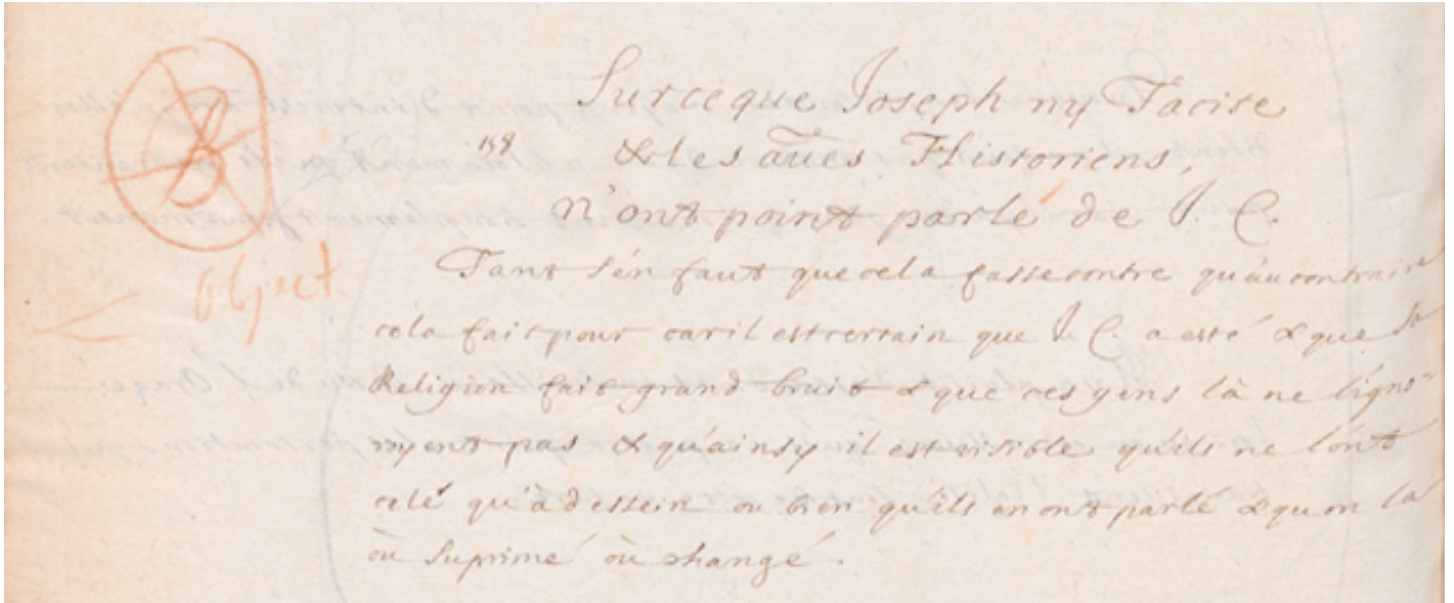 B
Sur ce que Joseph ny Tacite
158 & les aūes Historiens,
n'ont point parlé de J. C.
object.
Tant s'én faut que cela fasse contre qu'au contraire
cela fait pour car il est certain que J. C. a esté & que sa
Religion fait grand bruit & que ces gens là ne l'igno-
royent pas & qu'ainsy il est visible qu'ils ne l'ont
celé qu'à dessein ou bien qu'ils en ont parlé & qu'on l'a
où suprimé où changé.